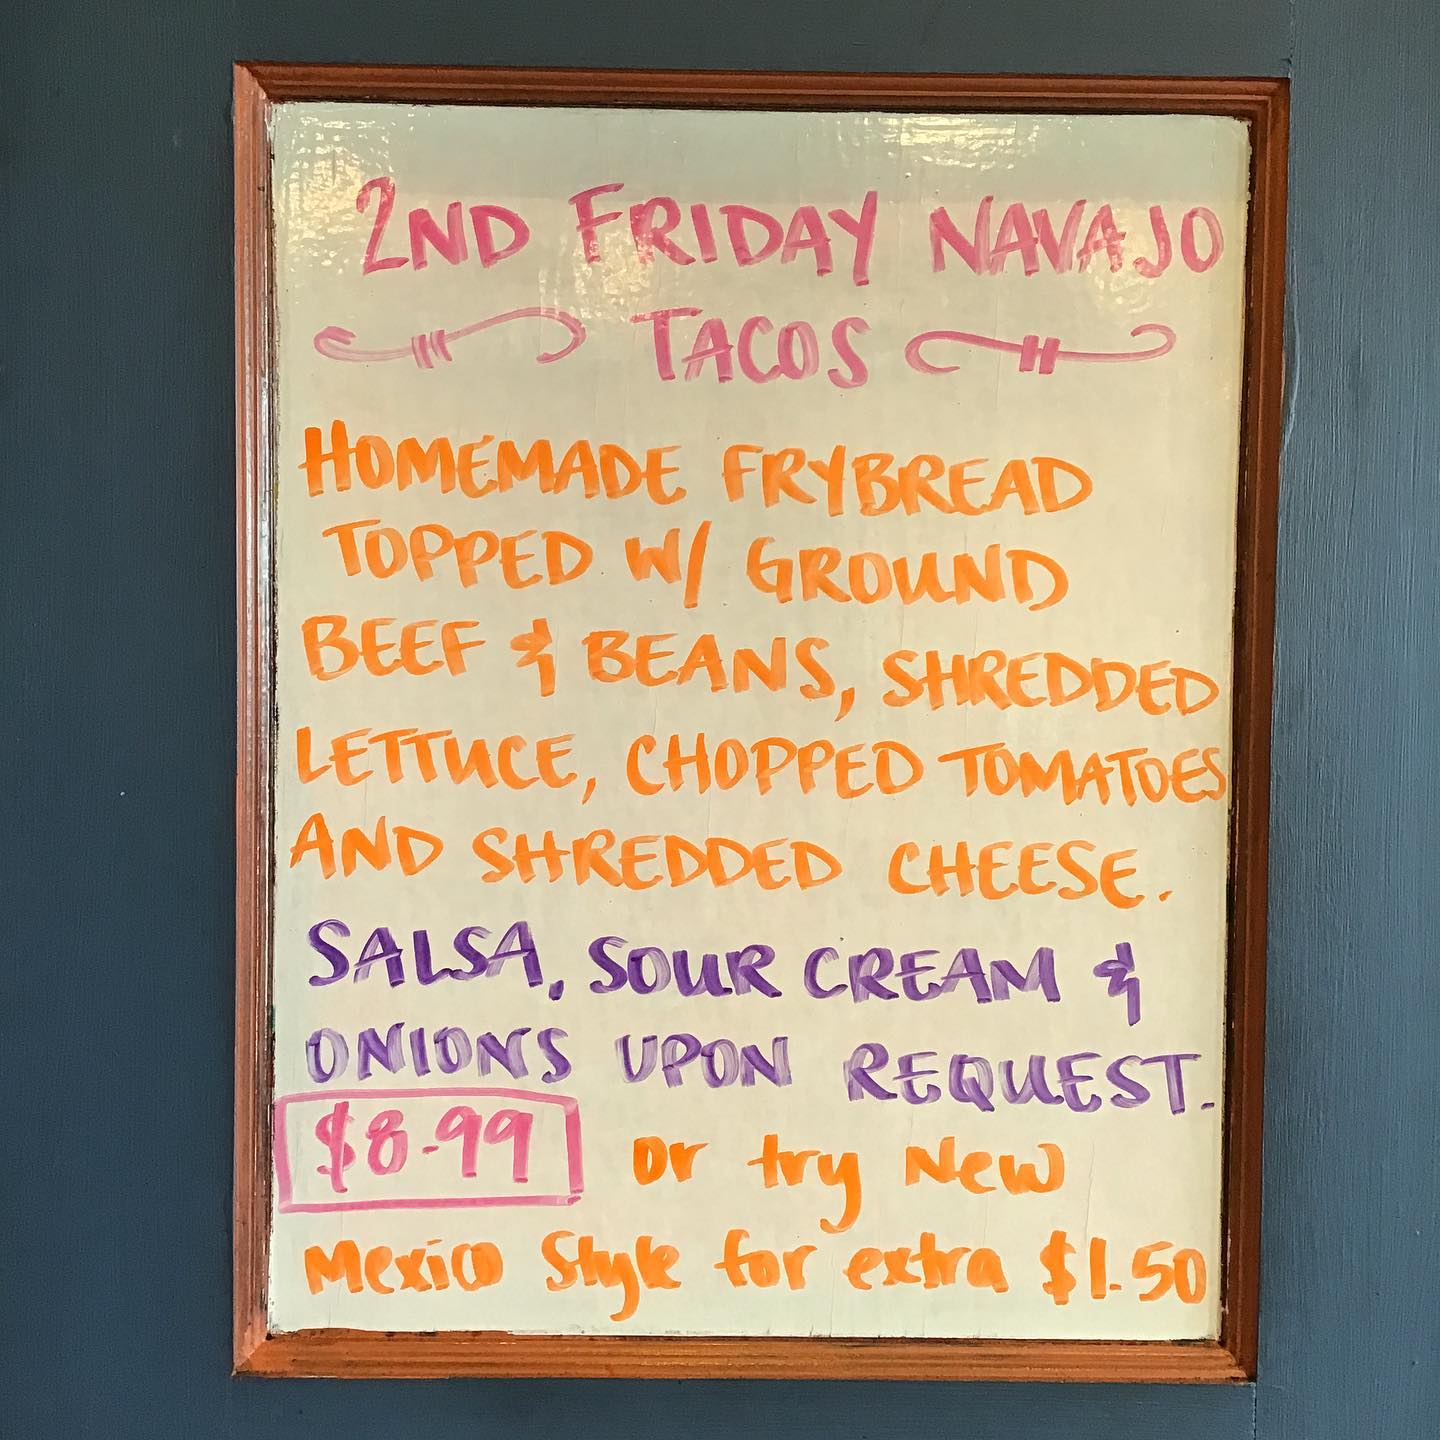 2ND FRIDAY NAVAJO
TACOS
HOMEMADE FRYBREAD
TOPPED W/ GROUND
BEEF & BEANS, SHREDDED
LETTUCE, CHOPPED TOMATOES
AND SHREDDED CHEESE.
SALSA, SOUR CREAM &
ONIONS UPON REQUEST.
$8.99 or try New
Mexico Style for extra $1.50